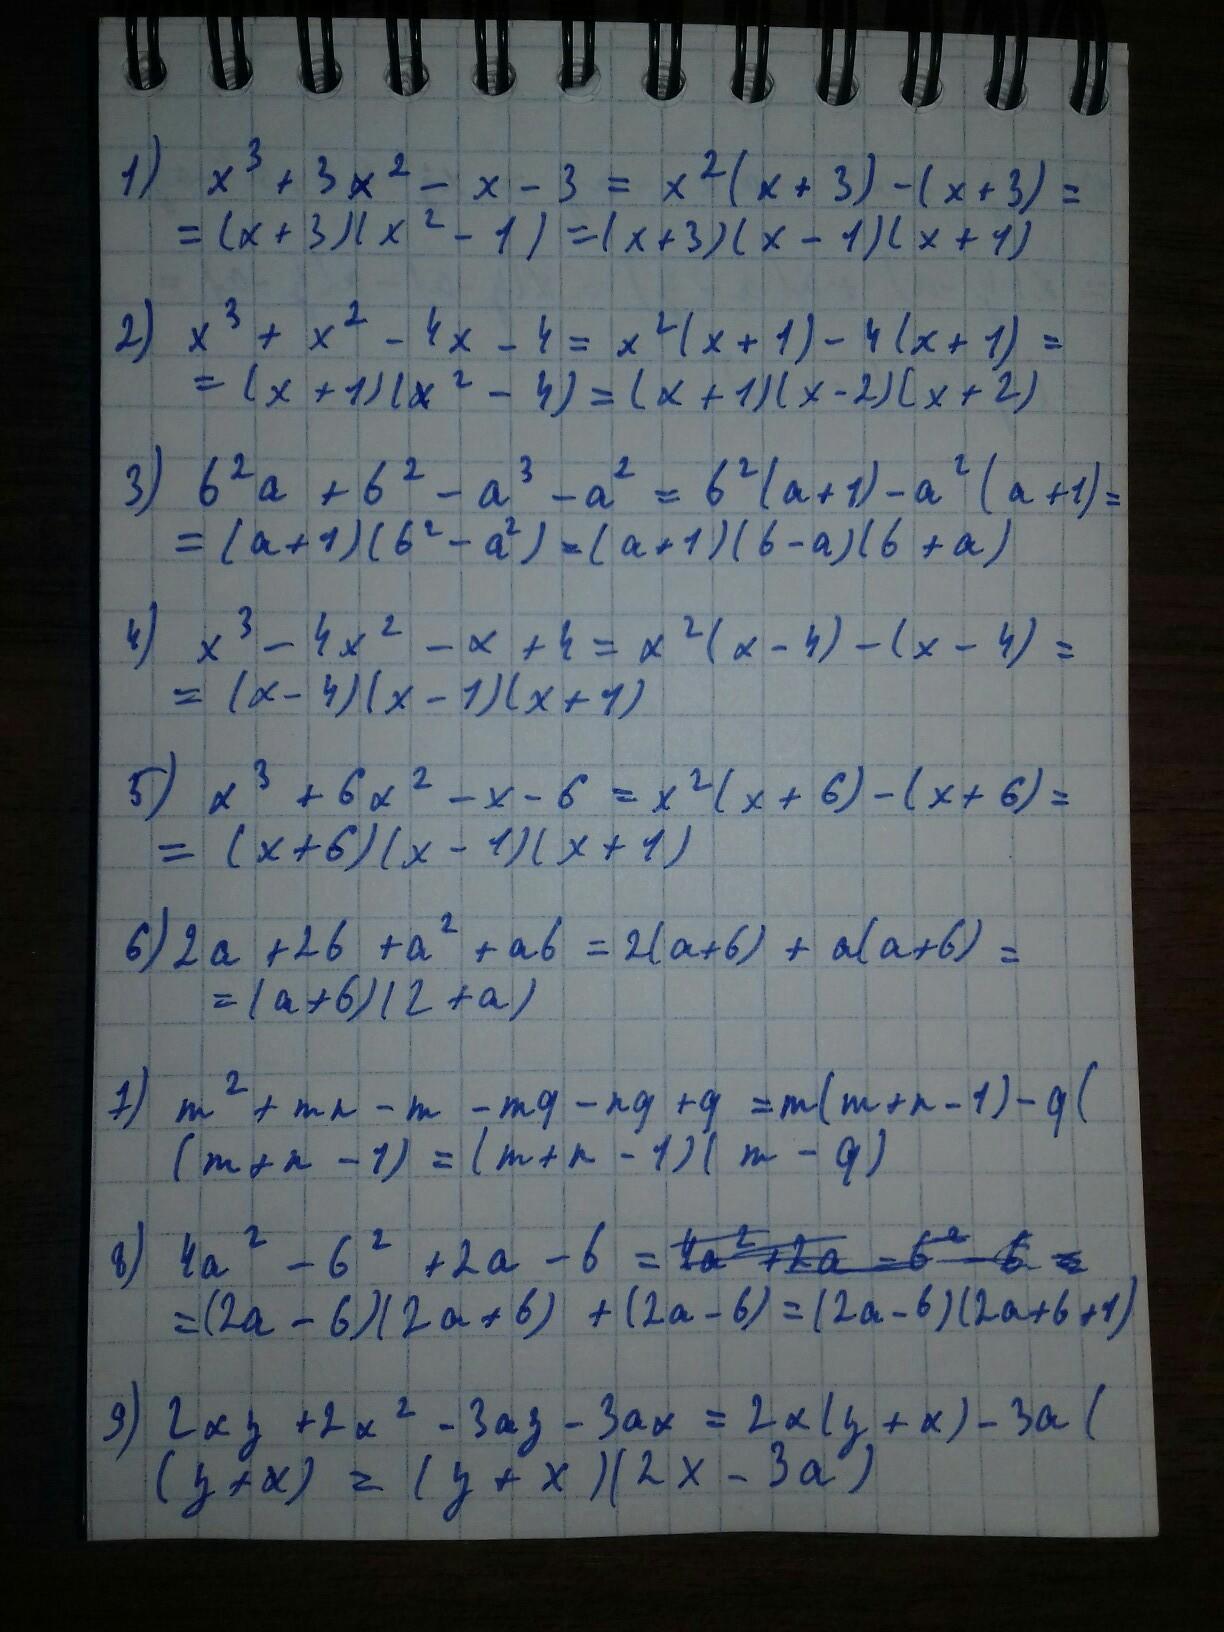 1) x³ + 3x² - x - 3 = x²(x + 3) - (x + 3) =
= (x + 3)(x² - 1) = (x + 3)(x - 1)(x + 1)
2) x³ + x² - 4x - 4 = x²(x + 1) - 4(x + 1) =
= (x + 1)(x² - 4) = (x + 1)(x - 2)(x + 2)
3) b²a + b² - a³ - a² = b²(a + 1) - a²(a + 1) =
= (a + 1)(b² - a²) = (a + 1)(b - a)(b + a)
4) x³ - 4x² - x + 4 = x²(x - 4) - (x - 4) =
= (x - 4)(x - 1)(x + 1)
5) x³ + 6x² - x - 6 = x²(x + 6) - (x + 6) =
= (x + 6)(x - 1)(x + 1)
6) 2a + 2b + a² + ab = 2(a + b) + a(a + b) =
= (a + b)(2 + a)
7) m² + mn - m - mq - nq + q = m(m + n - 1) - q(
(m + n - 1) = (m + n - 1)(m - q)
8) 4a² - b² + 2a - b = 4a² + 2a - b² - b =
= (2a - b)(2a + b) + (2a - b) = (2a - b)(2a + b + 1)
9) 2xy + 2x² - 3ay - 3ax = 2x(y + x) - 3a(
(y + x) = (y + x)(2x - 3a)